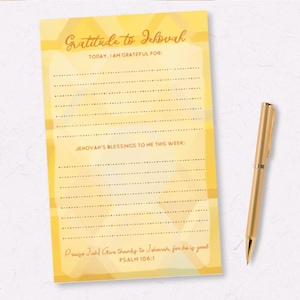 Gratitude to Jehovah
TODAY, I AM GRATEFUL FOR:
JEHOVAH'S BLESSINGS TO ME THIS WEEK:
Praise Jah! Give thanks to Jehovah, for he is good
PSALM 106:1